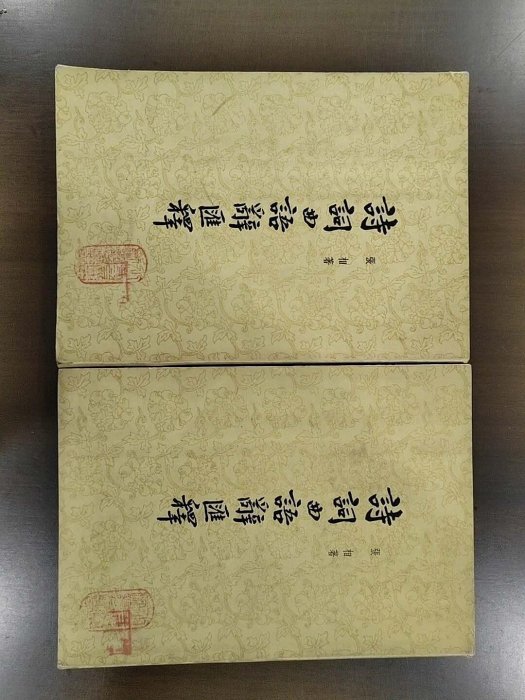 詩詞曲語辭匯釋
張相著
詩詞曲語辭匯釋
張相著